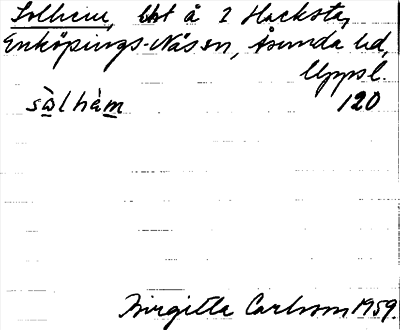 Solhem, bbt å 2 Hacksta,
Enköpings-Näs sn, Åsunda hd,
Uppsl.
sὼlhàm 120
Birgitta Carlsson 1959.